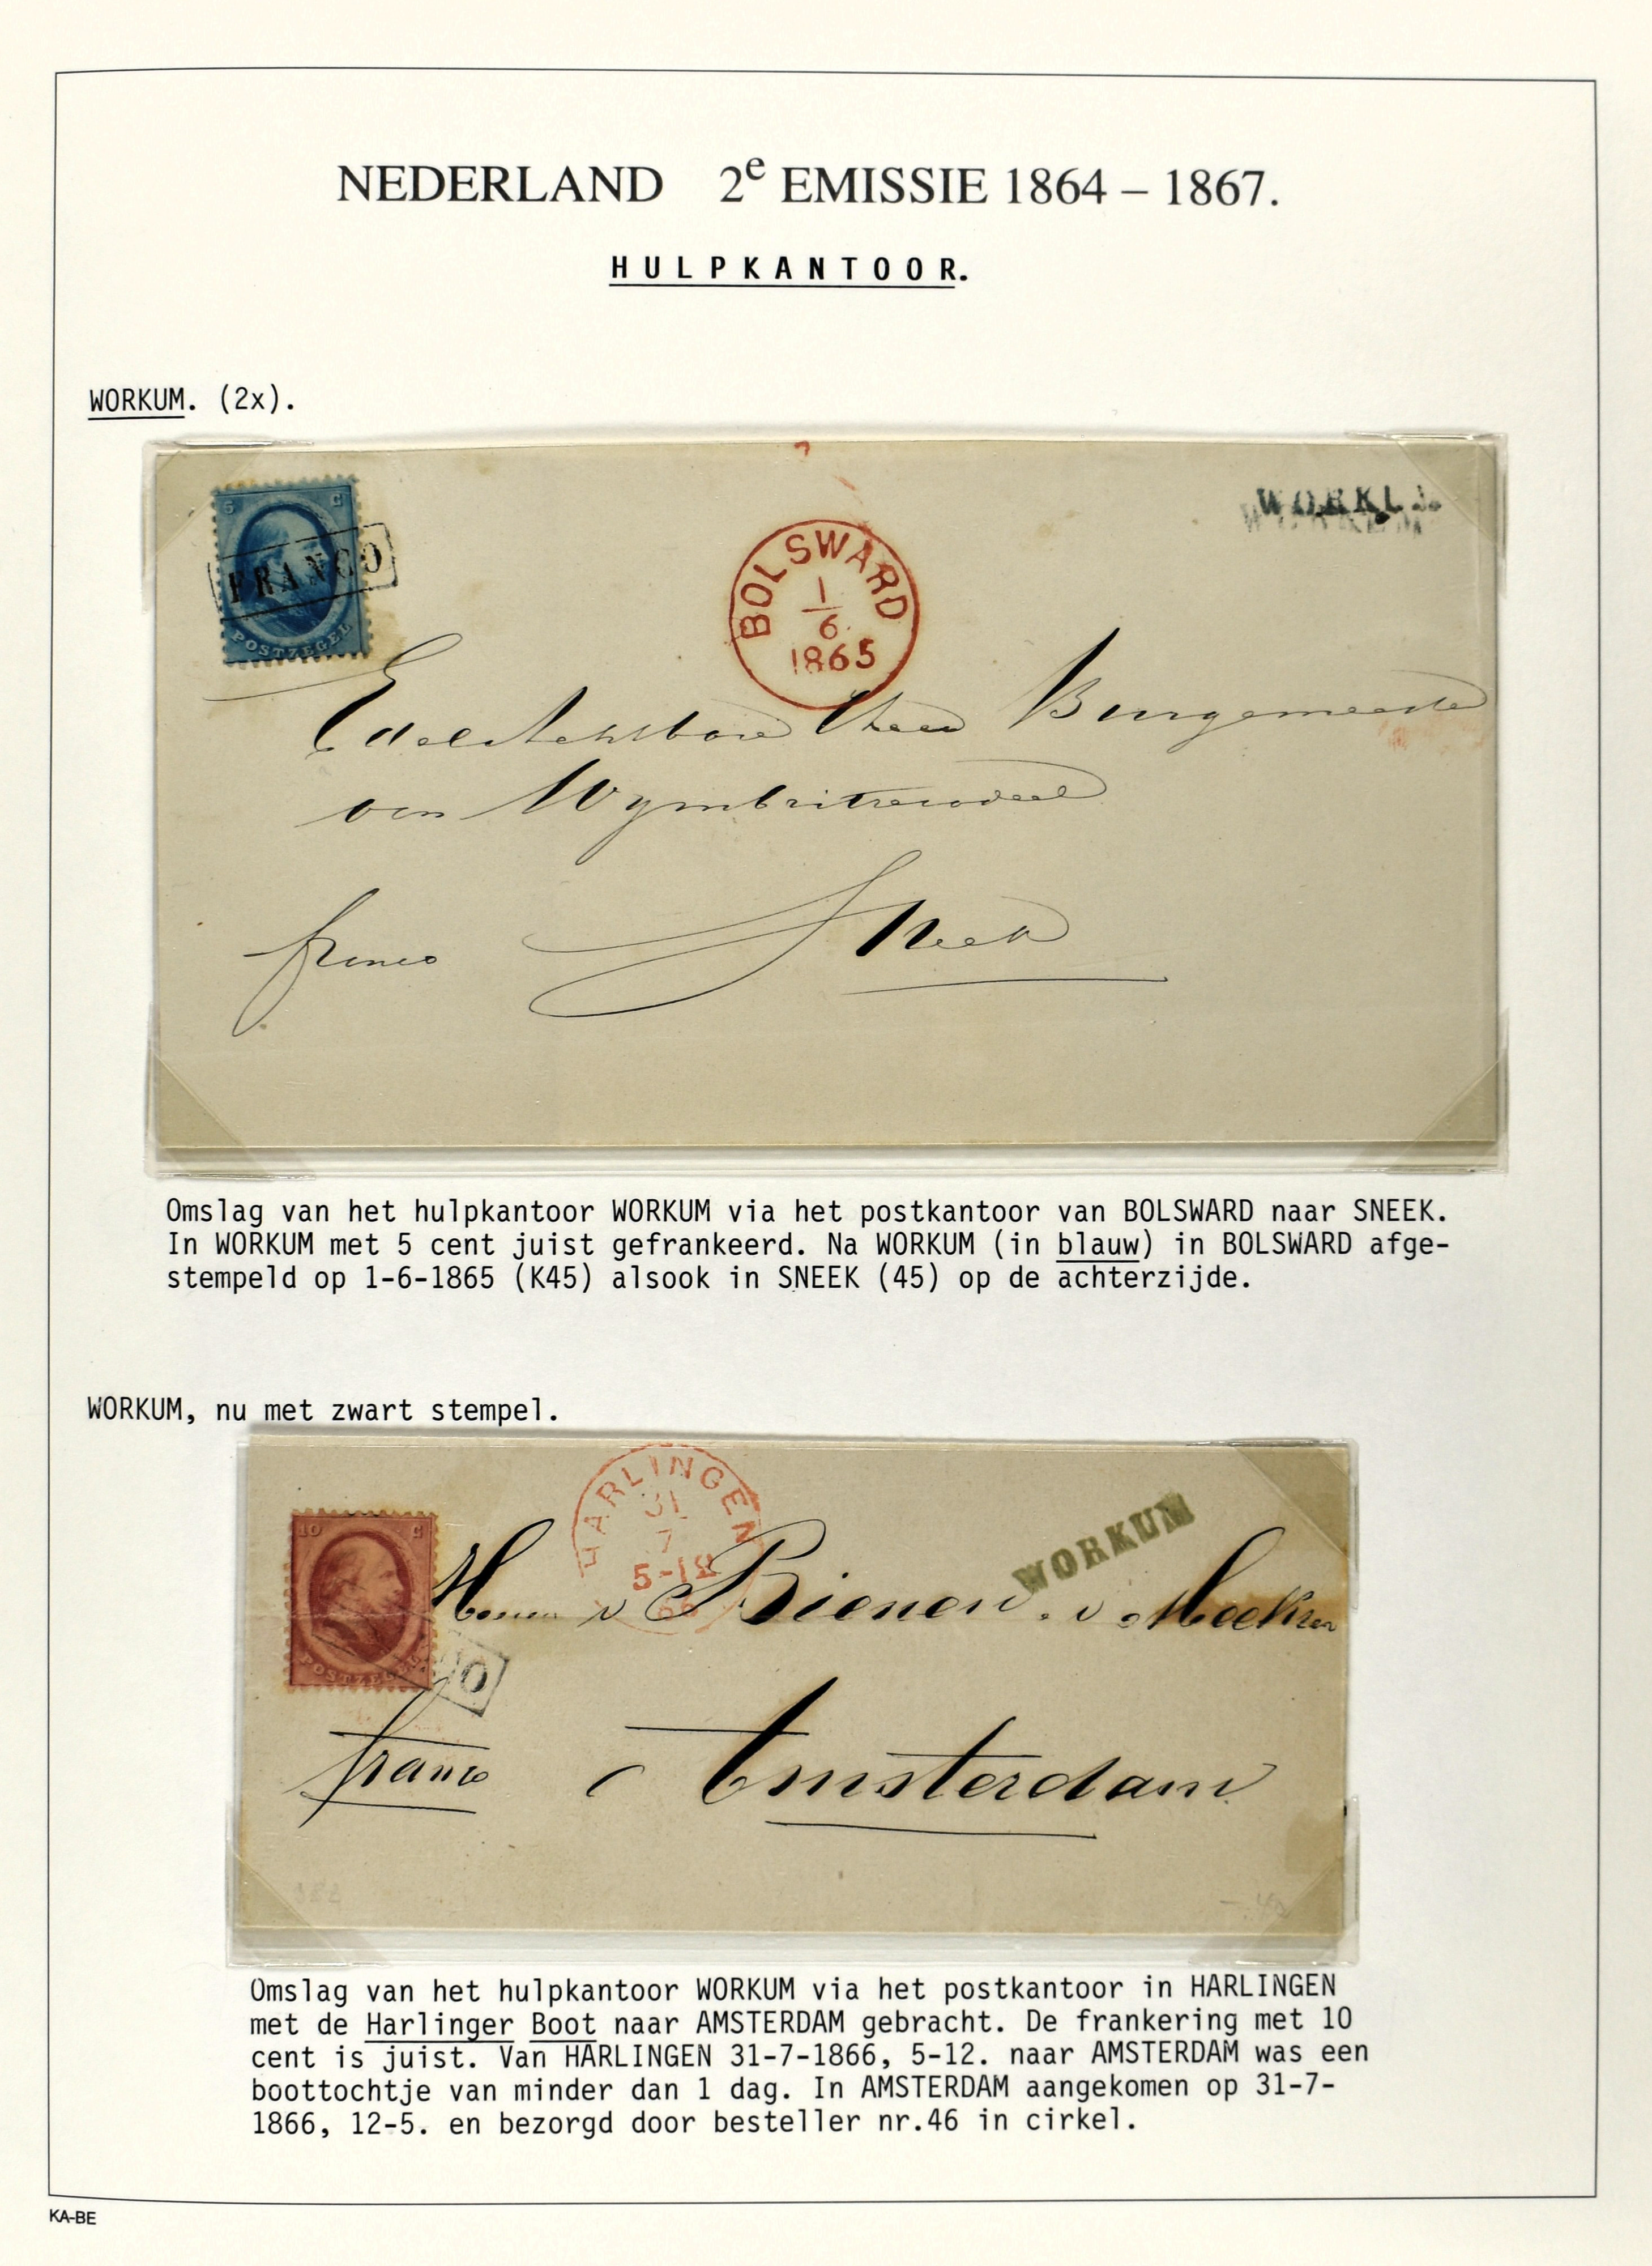 NEDERLAND 2e EMISSIE 1864 – 1867.
HULPKANTOOR.
WORKUM. (2x).
5 C
FRANCO
POSTZEGEL
BOLSWARD
1
6
1865
WORKUM
Edel Achtbare Heer Burgemeester
van Wymbritseradeel
franco Sneek
Omslag van het hulpkantoor WORKUM via het postkantoor van BOLSWARD naar SNEEK.
In WORKUM met 5 cent juist gefrankeerd. Na WORKUM (in blauw) in BOLSWARD afge-
stempeld op 1-6-1865 (K45) alsook in SNEEK (45) op de achterzijde.
WORKUM, nu met zwart stempel.
10 C
POSTZEGEL
O
HARLINGEN
31
7
5-12
66
WORKUM
Heeren v Bienen. v
franco Amsterdam
Omslag van het hulpkantoor WORKUM via het postkantoor in HARLINGEN
met de Harlinger Boot naar AMSTERDAM gebracht. De frankering met 10
cent is juist. Van HARLINGEN 31-7-1866, 5-12. naar AMSTERDAM was een
boottochtje van minder dan 1 dag. In AMSTERDAM aangekomen op 31-7-
1866, 12-5. en bezorgd door besteller nr.46 in cirkel.
KA-BE